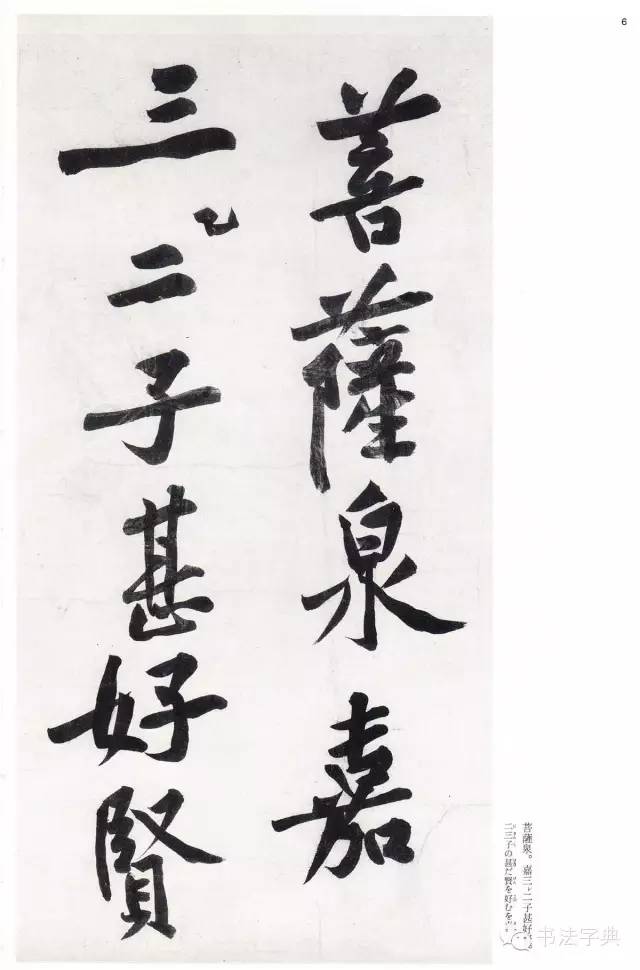 6
菩薩泉嘉
三〻二子甚好賢
菩薩泉。嘉三〻二子甚好
二三子の甚だ賢を好むを
书法字典